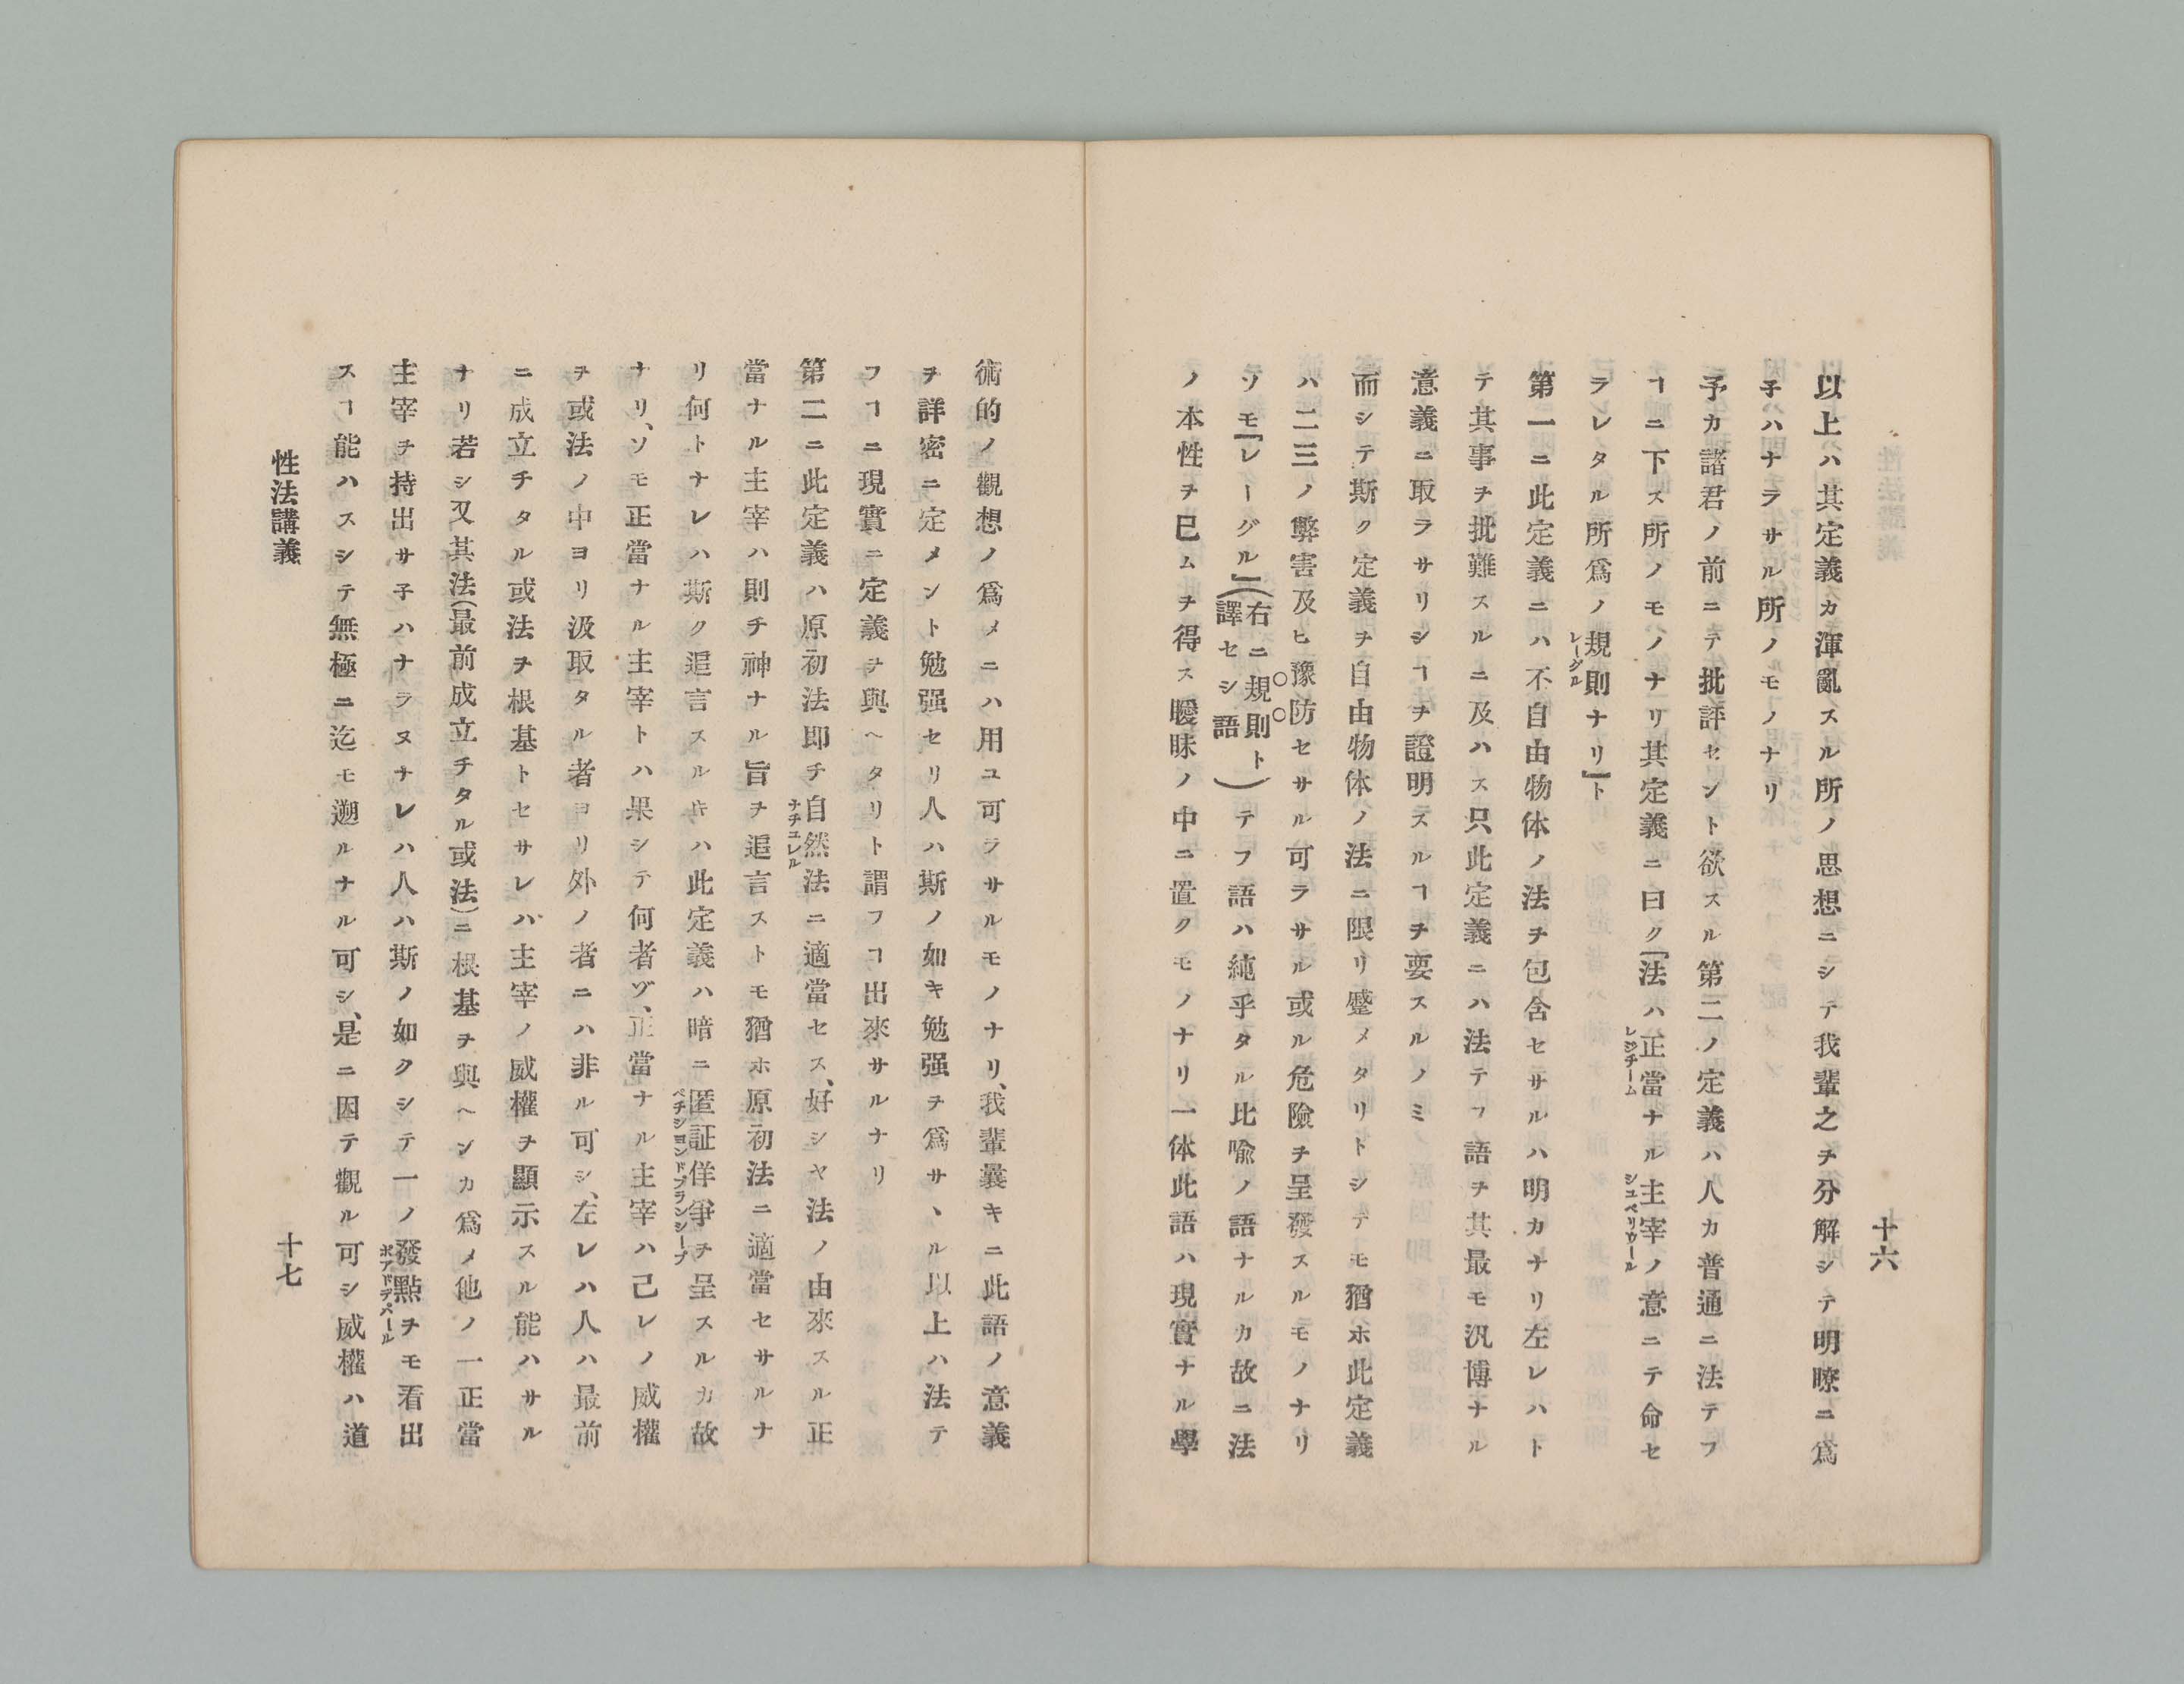 十六
以上ハ其定義カ渾亂スル所ノ思想ニシテ我輩之ヲ分解シテ明瞭ニ爲
子ハナラサル所ノモノナリ
予カ諸君ノ前ニテ批評セント欲スル第二ノ定義ハ人カ普通ニ法テフ
ヿニ下ス所ノモノナリ其定義ニ曰ク「法ハ正當ナル主宰ノ意ニテ命セ
レジチーム
シユペリウール
ラレタル所爲ノ規則ナリ」ト
レーグル
第一ニ此定義ニハ不自由物体ノ法ヲ包含セサルハ明カナリ左レハト
テ其事ヲ批難スルニ及ハス只此定義ニハ法テフ語ヲ其最モ汎博ナル
意義ニ取ラサリシヿヲ證明スルヿヲ要スルノミ
而シテ斯ク定義ヲ自由物体ノ法ニ限リ蹙メタリトシテモ猶ホ此定義
ハ二三ノ弊害及ヒ豫防セサル可ラサル或ル危險ヲ呈發スルモノナリ
ソモ「レーグル」(右ニ規則ト譯セシ語)テフ語ハ純乎タル比喩ノ語ナルカ故ニ法
ノ本性ヲ已ムヲ得ス曖昧ノ中ニ置クモノナリ一体此語ハ現實ナル學
術的ノ觀想ノ爲メニハ用ユ可ラサルモノナリ、我輩曩キニ此語ノ意義
ヲ詳密ニ定メント勉强セリ人ハ斯ノ如キ勉强ヲ爲サヽル以上ハ法テ
フヿニ現實ニ定義ヲ與ヘタリト謂フヿ出來サルナリ
第二ニ此定義ハ原初法即チ自然法ニ適當セス、好シヤ法ノ由來スル正
ナチユレル
當ナル主宰ハ則チ神ナル旨ヲ追言ストモ猶ホ原初法ニ適當セサルナ
リ何トナレハ斯ク追言スルキハ此定義ハ暗ニ匿証佯爭ヲ呈スルカ故
ペチシヨンドプランシープ
ナリ、ソモ正當ナル主宰トハ果シテ何者ゾ、正當ナル主宰ハ己レノ威權
ヲ或法ノ中ヨリ汲取タル者ヨリ外ノ者ニハ非ル可シ、左レハ人ハ最前
ニ成立チタル或法ヲ根基トセサレハ主宰ノ威權ヲ顯示スル能ハサル
ナリ若シ又其法(最前成立チタル或法)ニ根基ヲ與ヘンカ爲メ他ノ一正當
主宰ヲ持出サ子ハナラヌナレハ人ハ斯ノ如クシテ一ノ發點ヲモ看出
ポアドデパール
スヿ能ハスシテ無極ニ迄モ遡ルナル可シ、是ニ因テ觀ル可シ威權ハ道
性法講義
十七